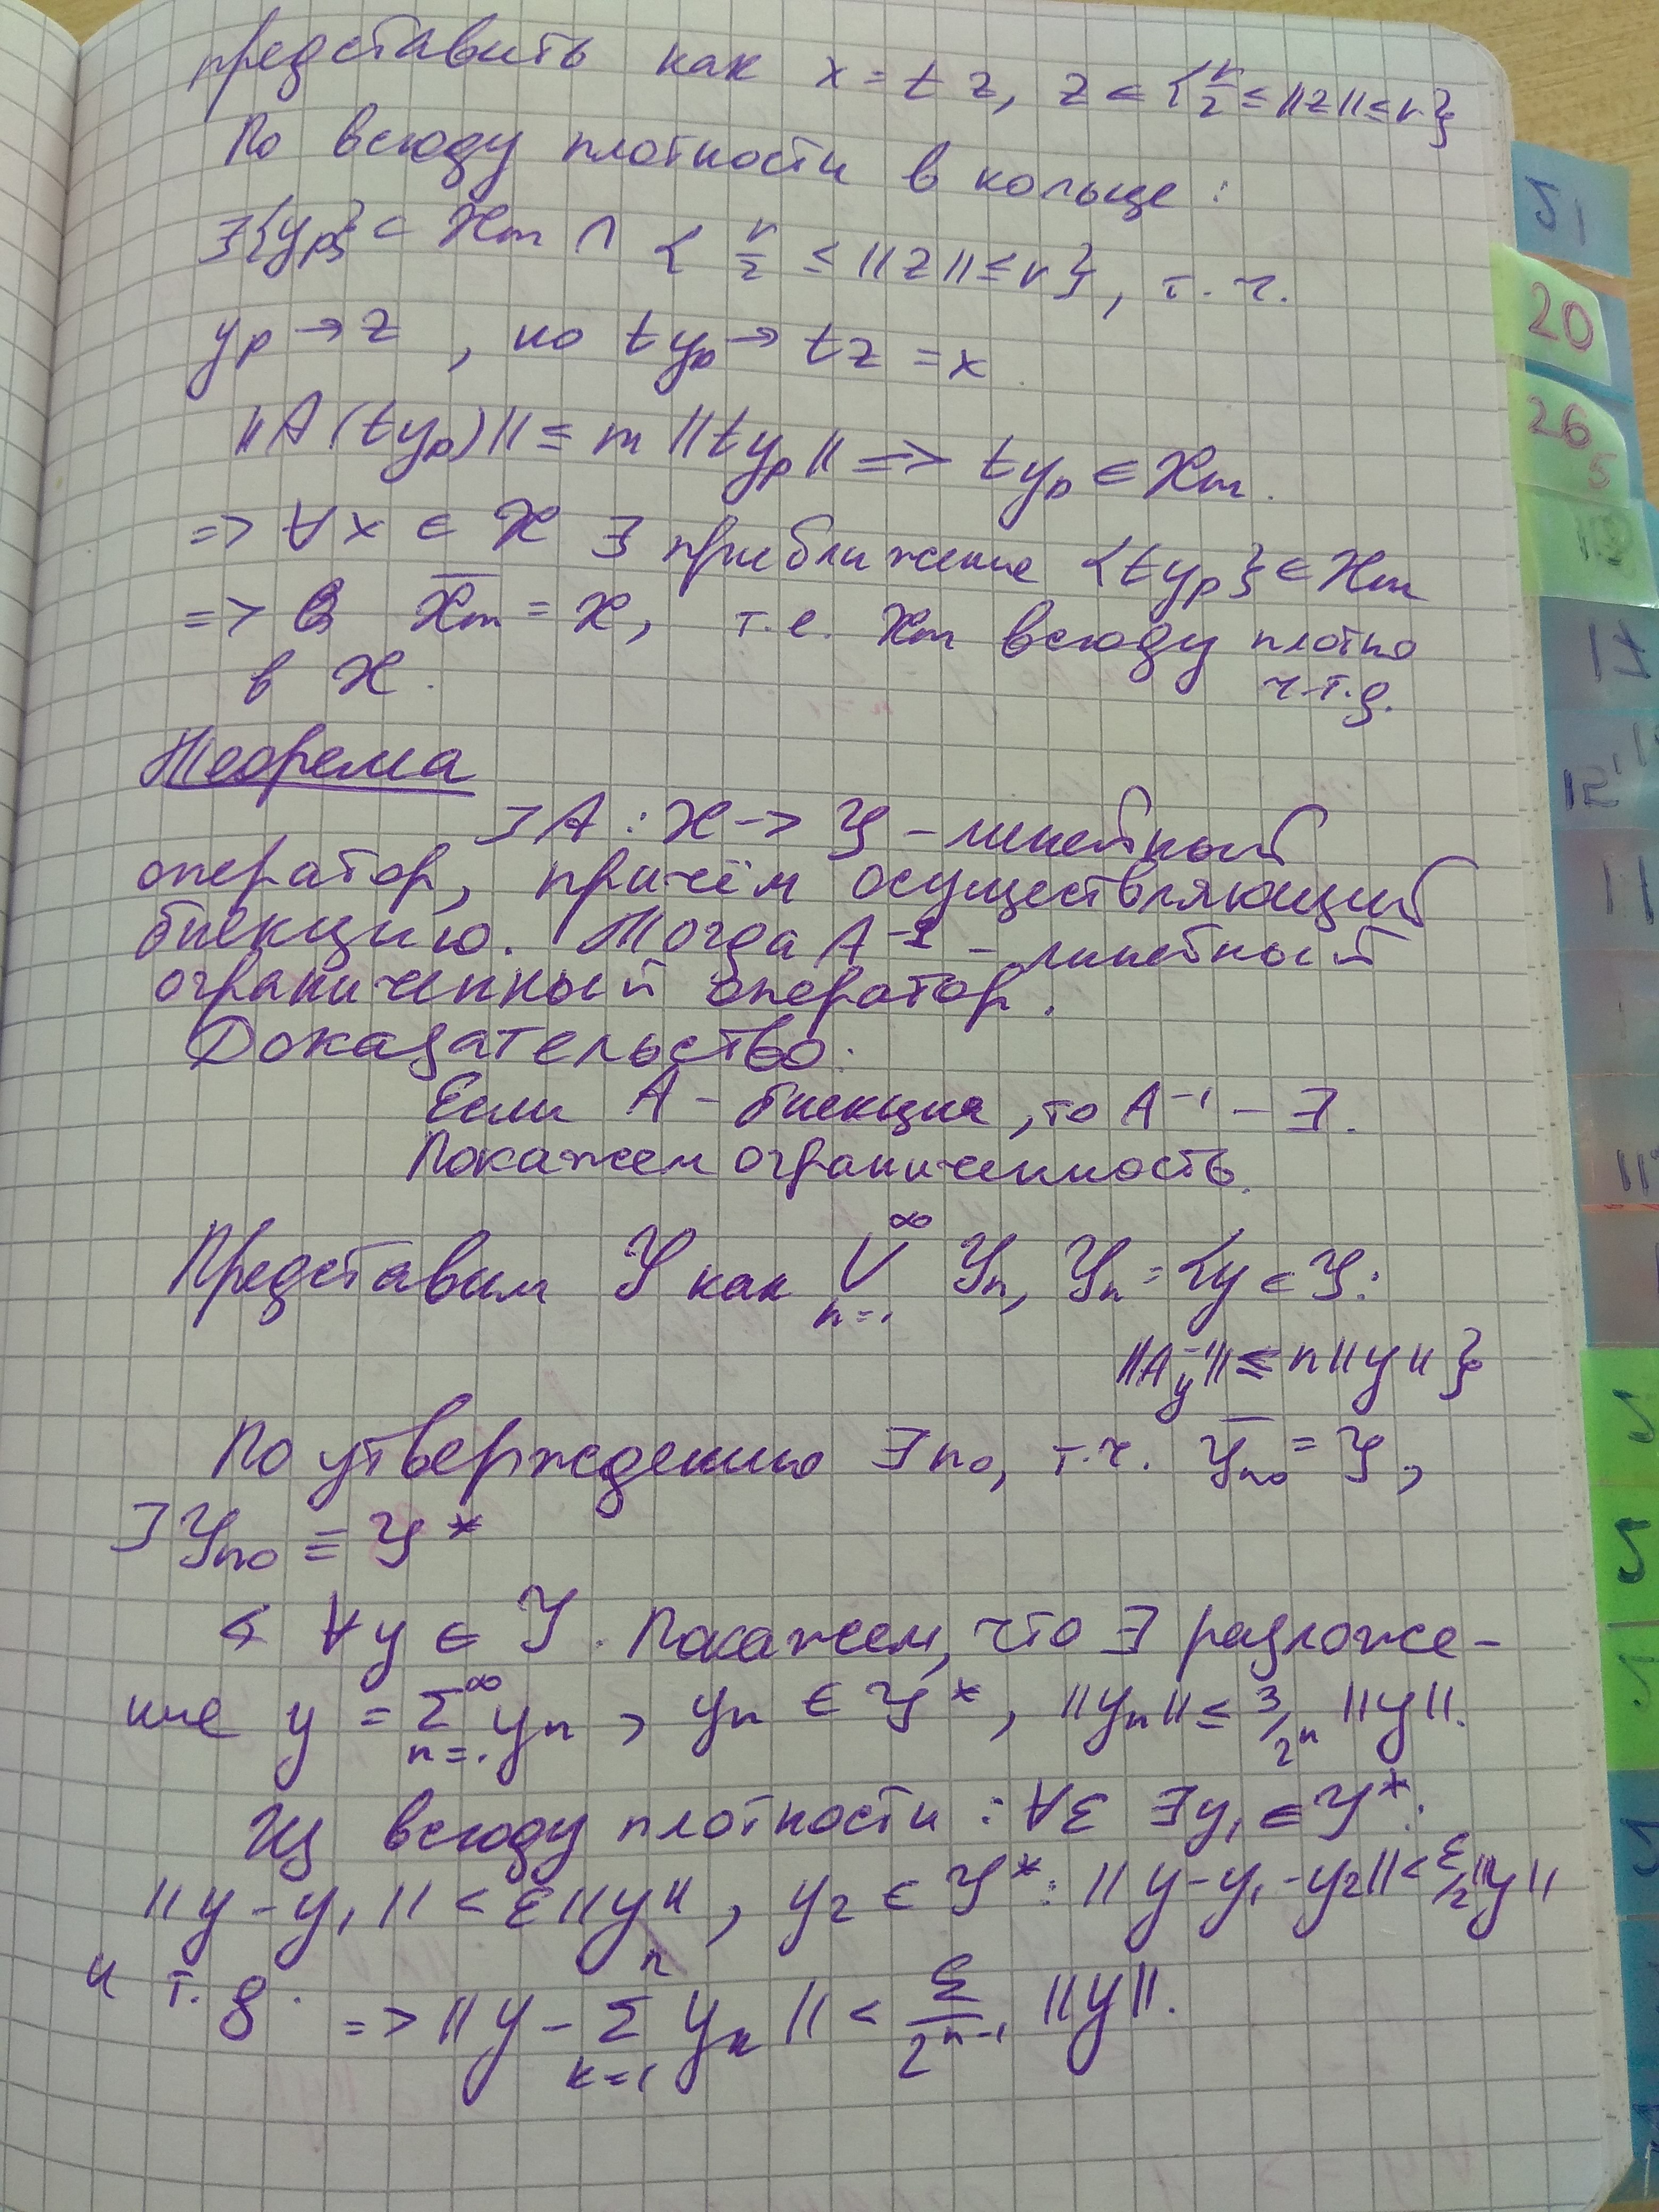 представить как x = t z, z ∈ {r/2 ≤ ||z|| ≤ r}
По всюду плотности в кольце :
∃{yp} ⊂ Xm ∩ { r/2 ≤ ||z|| ≤ r }, т.ч.
yp → z , но t yp → t z = x
||A(typ)|| ≤ m ||typ|| => typ ∈ Xm.
=> ∀x ∈ X ∃ приближение {typ} ∈ Xm
=> X̅m = X, т.е. Xm всюду плотно
в X. ч.т.д.
Теорема
⊐ A : X -> Y - линейный
оператор, причём осуществляющий
биекцию. Тогда A⁻¹ - линейный
ограниченный оператор.
Доказательство:
Если A - биекция, то A⁻¹ - ∃.
Покажем ограниченность.
Представим Y как ∞ ∪ n=1 Yn, Yn = {y ∈ Y:
||A⁻¹y|| ≤ n||y|| }
По утверждению ∃n₀, т.ч. Y̅n₀ = Y,
⊐ Yn₀ ≡ Y*
∢ ∀y ∈ Y. Покажем, что ∃ разложе-
ние y = ∞ Σ n=1 yn , yn ∈ Y*, ||yn|| ≤ 3/2ⁿ ||y||.
Из всюду плотности : ∀ε ∃y₁ ∈ Y*:
||y - y₁|| < ε||y||, y₂ ∈ Y*: ||y - y₁ - y₂|| < ε/2 ||y||
и т.д. => ||y - n Σ k=1 yk || < ε/2ⁿ⁻¹ ||y||.
51
20
26
5
13
17
11
11
5
5